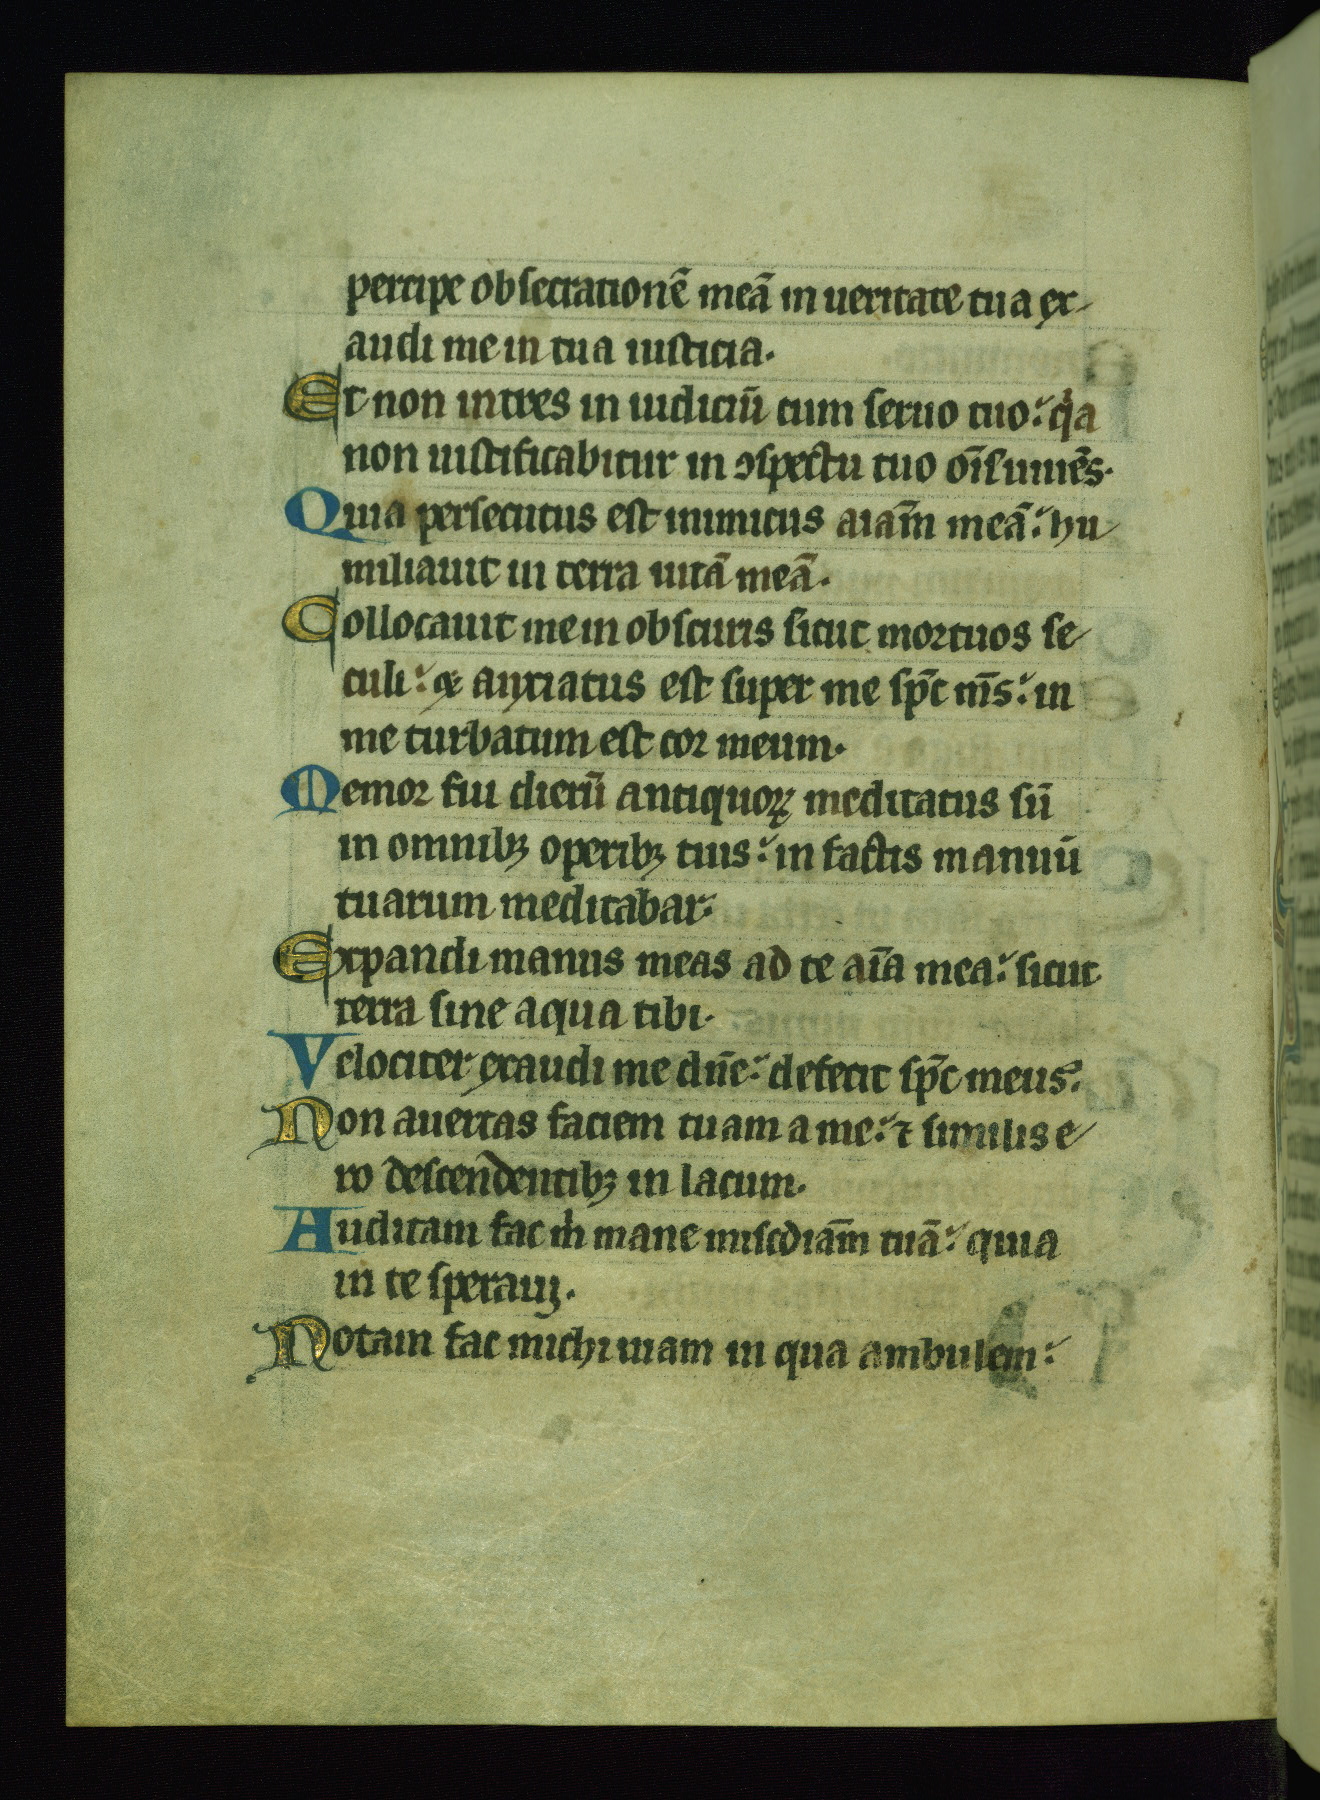 percipe obsecrationē meā in ueritate tua ex-
audi me in tua iusticia.
Et non intres in iudiciū cum seruo tuo: qͥa
non iustificabitur in ɔspectu tuo oīs uiuēs.
Quia persecutus est inimicus aiam̄ meā: hu-
miliauit in terra uitā meā.
Collocauit me in obscuris sicut mortuos se-
culi: ⁊ anxiatus est super me sp̄c m̄s: in
me turbatum est cor meum.
Memor fui dierū antiquoꝝ meditatus sū
in omnibꝫ operibꝫ tuis: in factis manuū
tuarum meditabar.
Expandi manus meas ad te aīa mea: sicut
terra sine aqua tibi.
Velociter exaudi me dn̄e: defecit sp̄c meus.
Non auertas faciem tuam a me: ⁊ similis e-
ro descendentibꝫ in lacum.
Auditam fac m̍h mane misc̄diam̄ tuā: quia
in te speraui.
Notam fac michi uiam in qua ambulem: